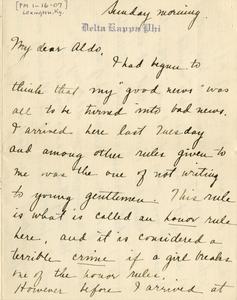 [PM 1-16-07
Lexington, Ky.]
Sunday morning.
Delta Kappa Phi
My dear Aldo,
I had begun to
think that my "good news" was
all to be turned into bad news.
I arrived here last Tuesday
and among other rules given to
me was the one of not writing
to young gentlemen. This rule
is what is called an honor rule
here, and it is considered a
terrible crime if a girl breaks
one of the honor rules.
However before I arrived at